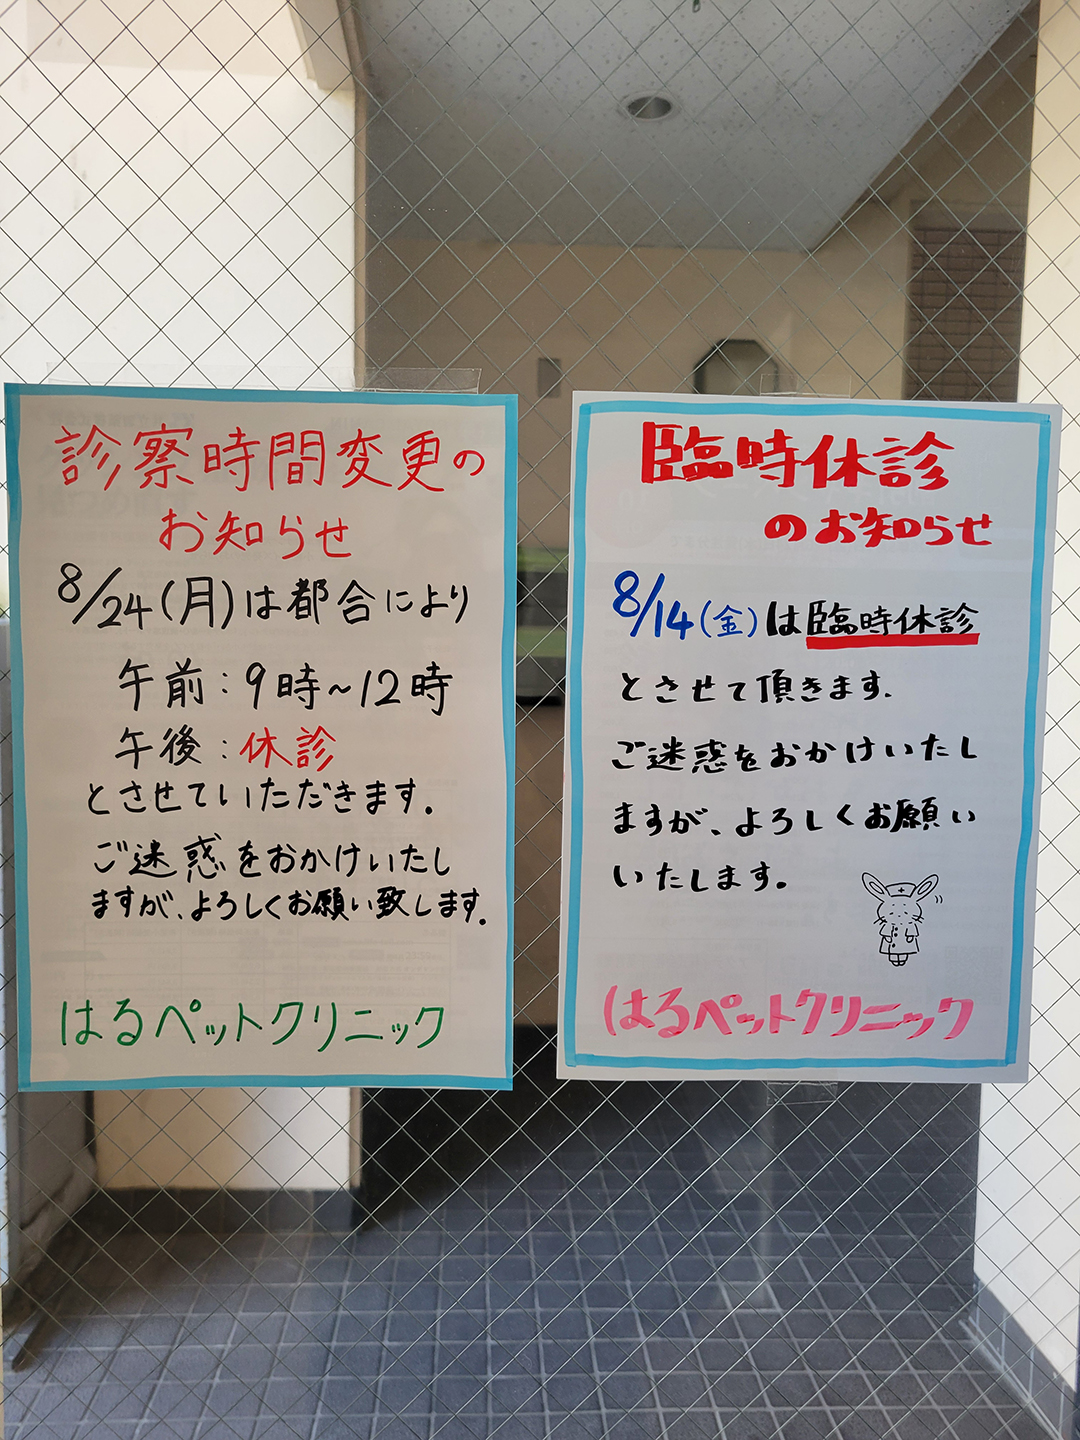 診察時間変更の
お知らせ
8/24(月)は都合により
午前:9時~12時
午後:休診
とさせていただきます。
ご迷惑をおかけいたし
ますが、よろしくお願い致します。
はるペットクリニック
臨時休診
のお知らせ
8/14(金)は臨時休診
とさせて頂きます。
ご迷惑をおかけいたし
ますが、よろしくお願い
いたします。
はるペットクリニック